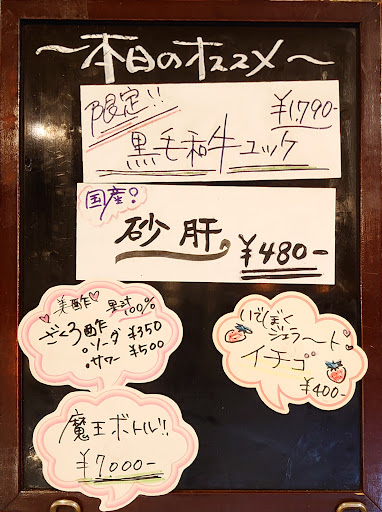 ～本日のオススメ～
限定!!
¥1,790-
黒毛和牛ユッケ
国産?
砂肝
¥480-
美酢 果汁100%
ざくろ酢
・ソーダ ¥350
・サワー ¥500
いでぼく
ジェラート
イチゴ
¥400-
魔王ボトル!!
¥7,000-